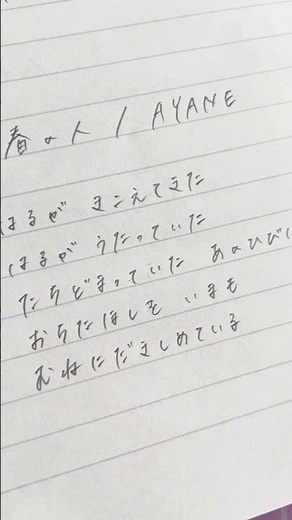 春の人 / AYANE
はるが きこえてきた
はるが うたっていた
たちどまっていた あのひび
おちたほしを いまも
むねにだきしめている